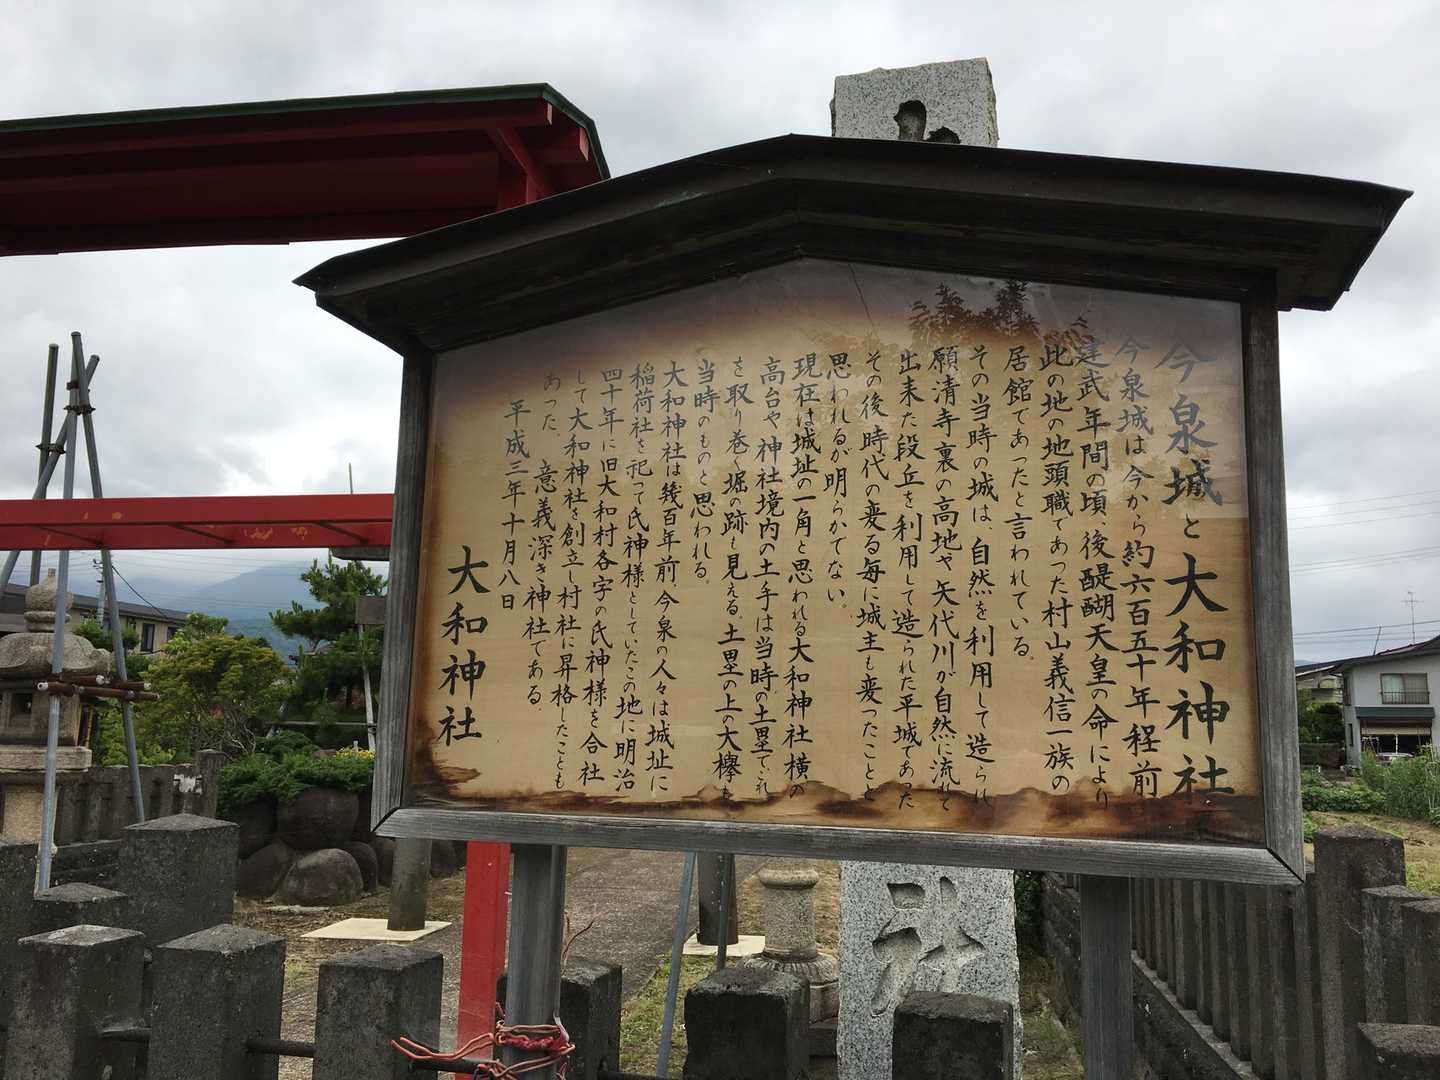 今泉城と大和神社
今泉城は今から約六百五十年程前
建武年間の頃、後醍醐天皇の命により
此の地の地頭職であった村山義信一族の
居館であったと言われている。
その当時の城は、自然を利用して造られ
願清寺裏の高地や矢代川が自然に流れて
出来た段丘を利用して造られた平城であった
その後時代の変る毎に城主も変ったことと
思われるが明らかでない。
現在は城址の一角と思われる大和神社横の
高台や神社境内の土手は当時の土塁で、これ
を取り巻く堀の跡も見える土塁の上の大欅も
当時のものと思われる。
大和神社は幾百年前、今泉の人々は城址に
稲荷社を祀って氏神様としていたこの地に明治
四十年に旧大和村各字の氏神様を合社
して大和神社を創立し村社に昇格したことも
あった、意義深き神社である
平成三年十月八日
大和神社
社